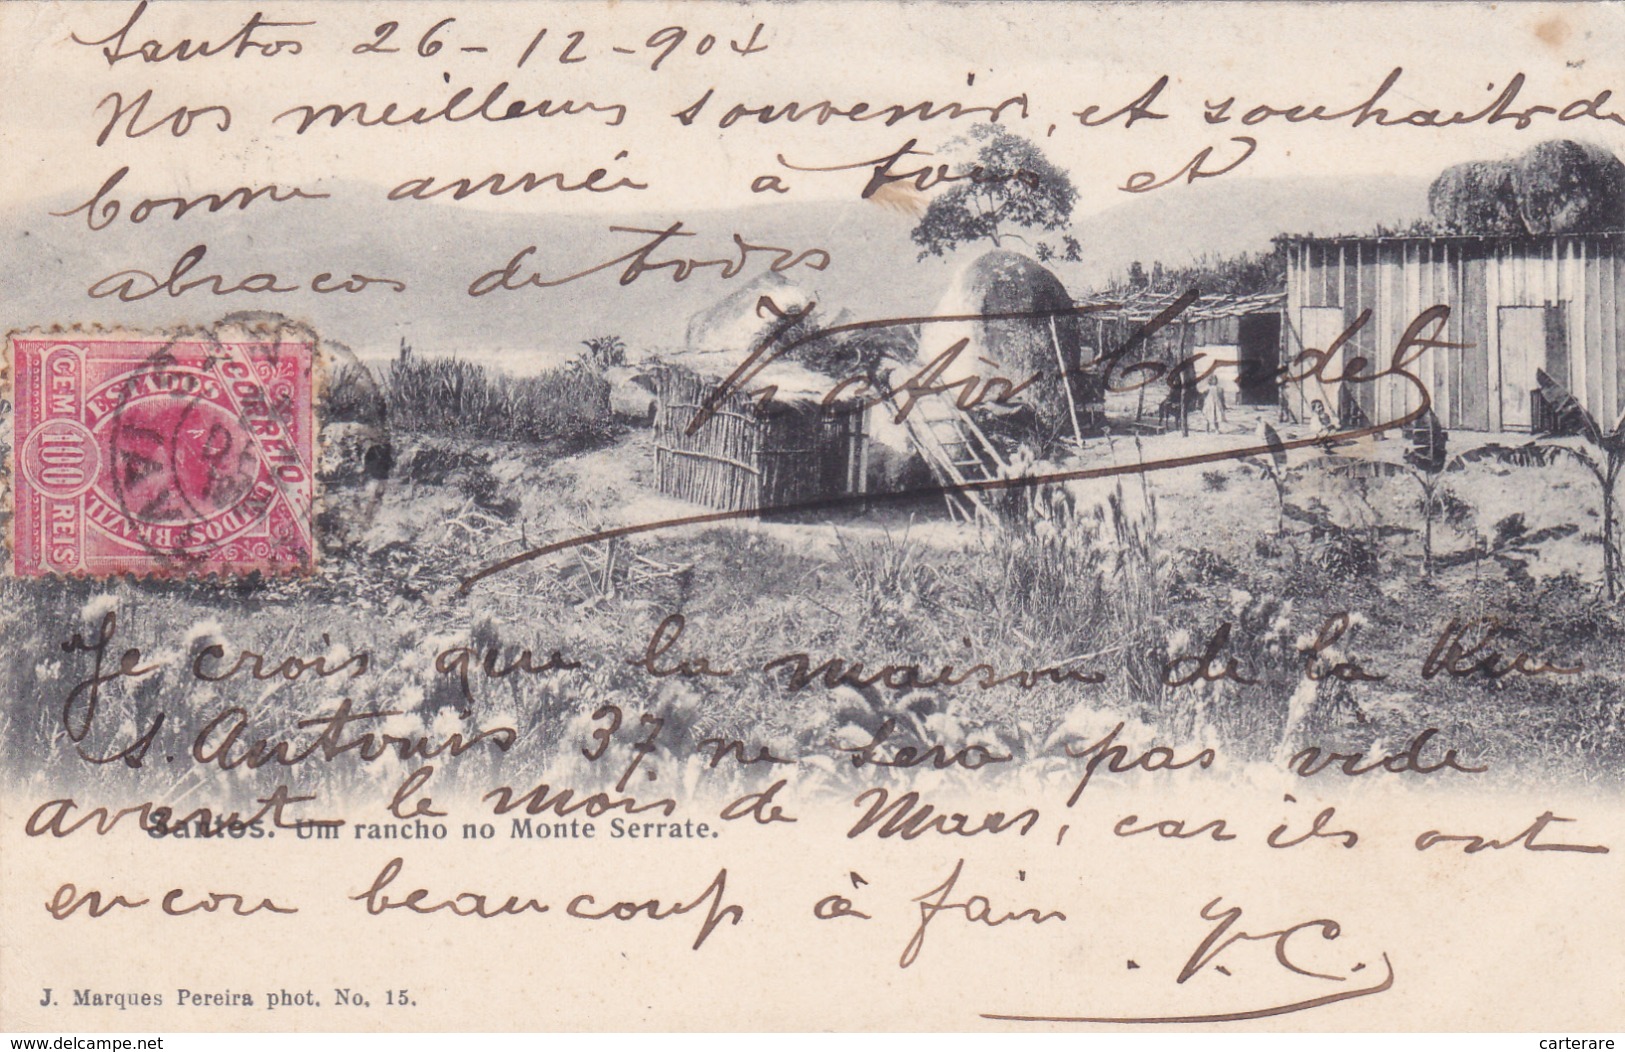 Santos 26-12-904
Nos meilleurs souvenirs, et souhaits de
bonne année à tous et
abraços de todos
Victor Cordet
CORREIO
ESTADOS UNIDOS DO BRAZIL
CEM 100 REIS
Je crois que la maison de la Rua
S. Antonio 37 ne sera pas vide
avant le mois de Mars, car ils ont
Santos. Um rancho no Monte Serrate.
encore beaucoup à faire
V.C.
J. Marques Pereira phot. No. 15.
delcampe.net
carterare